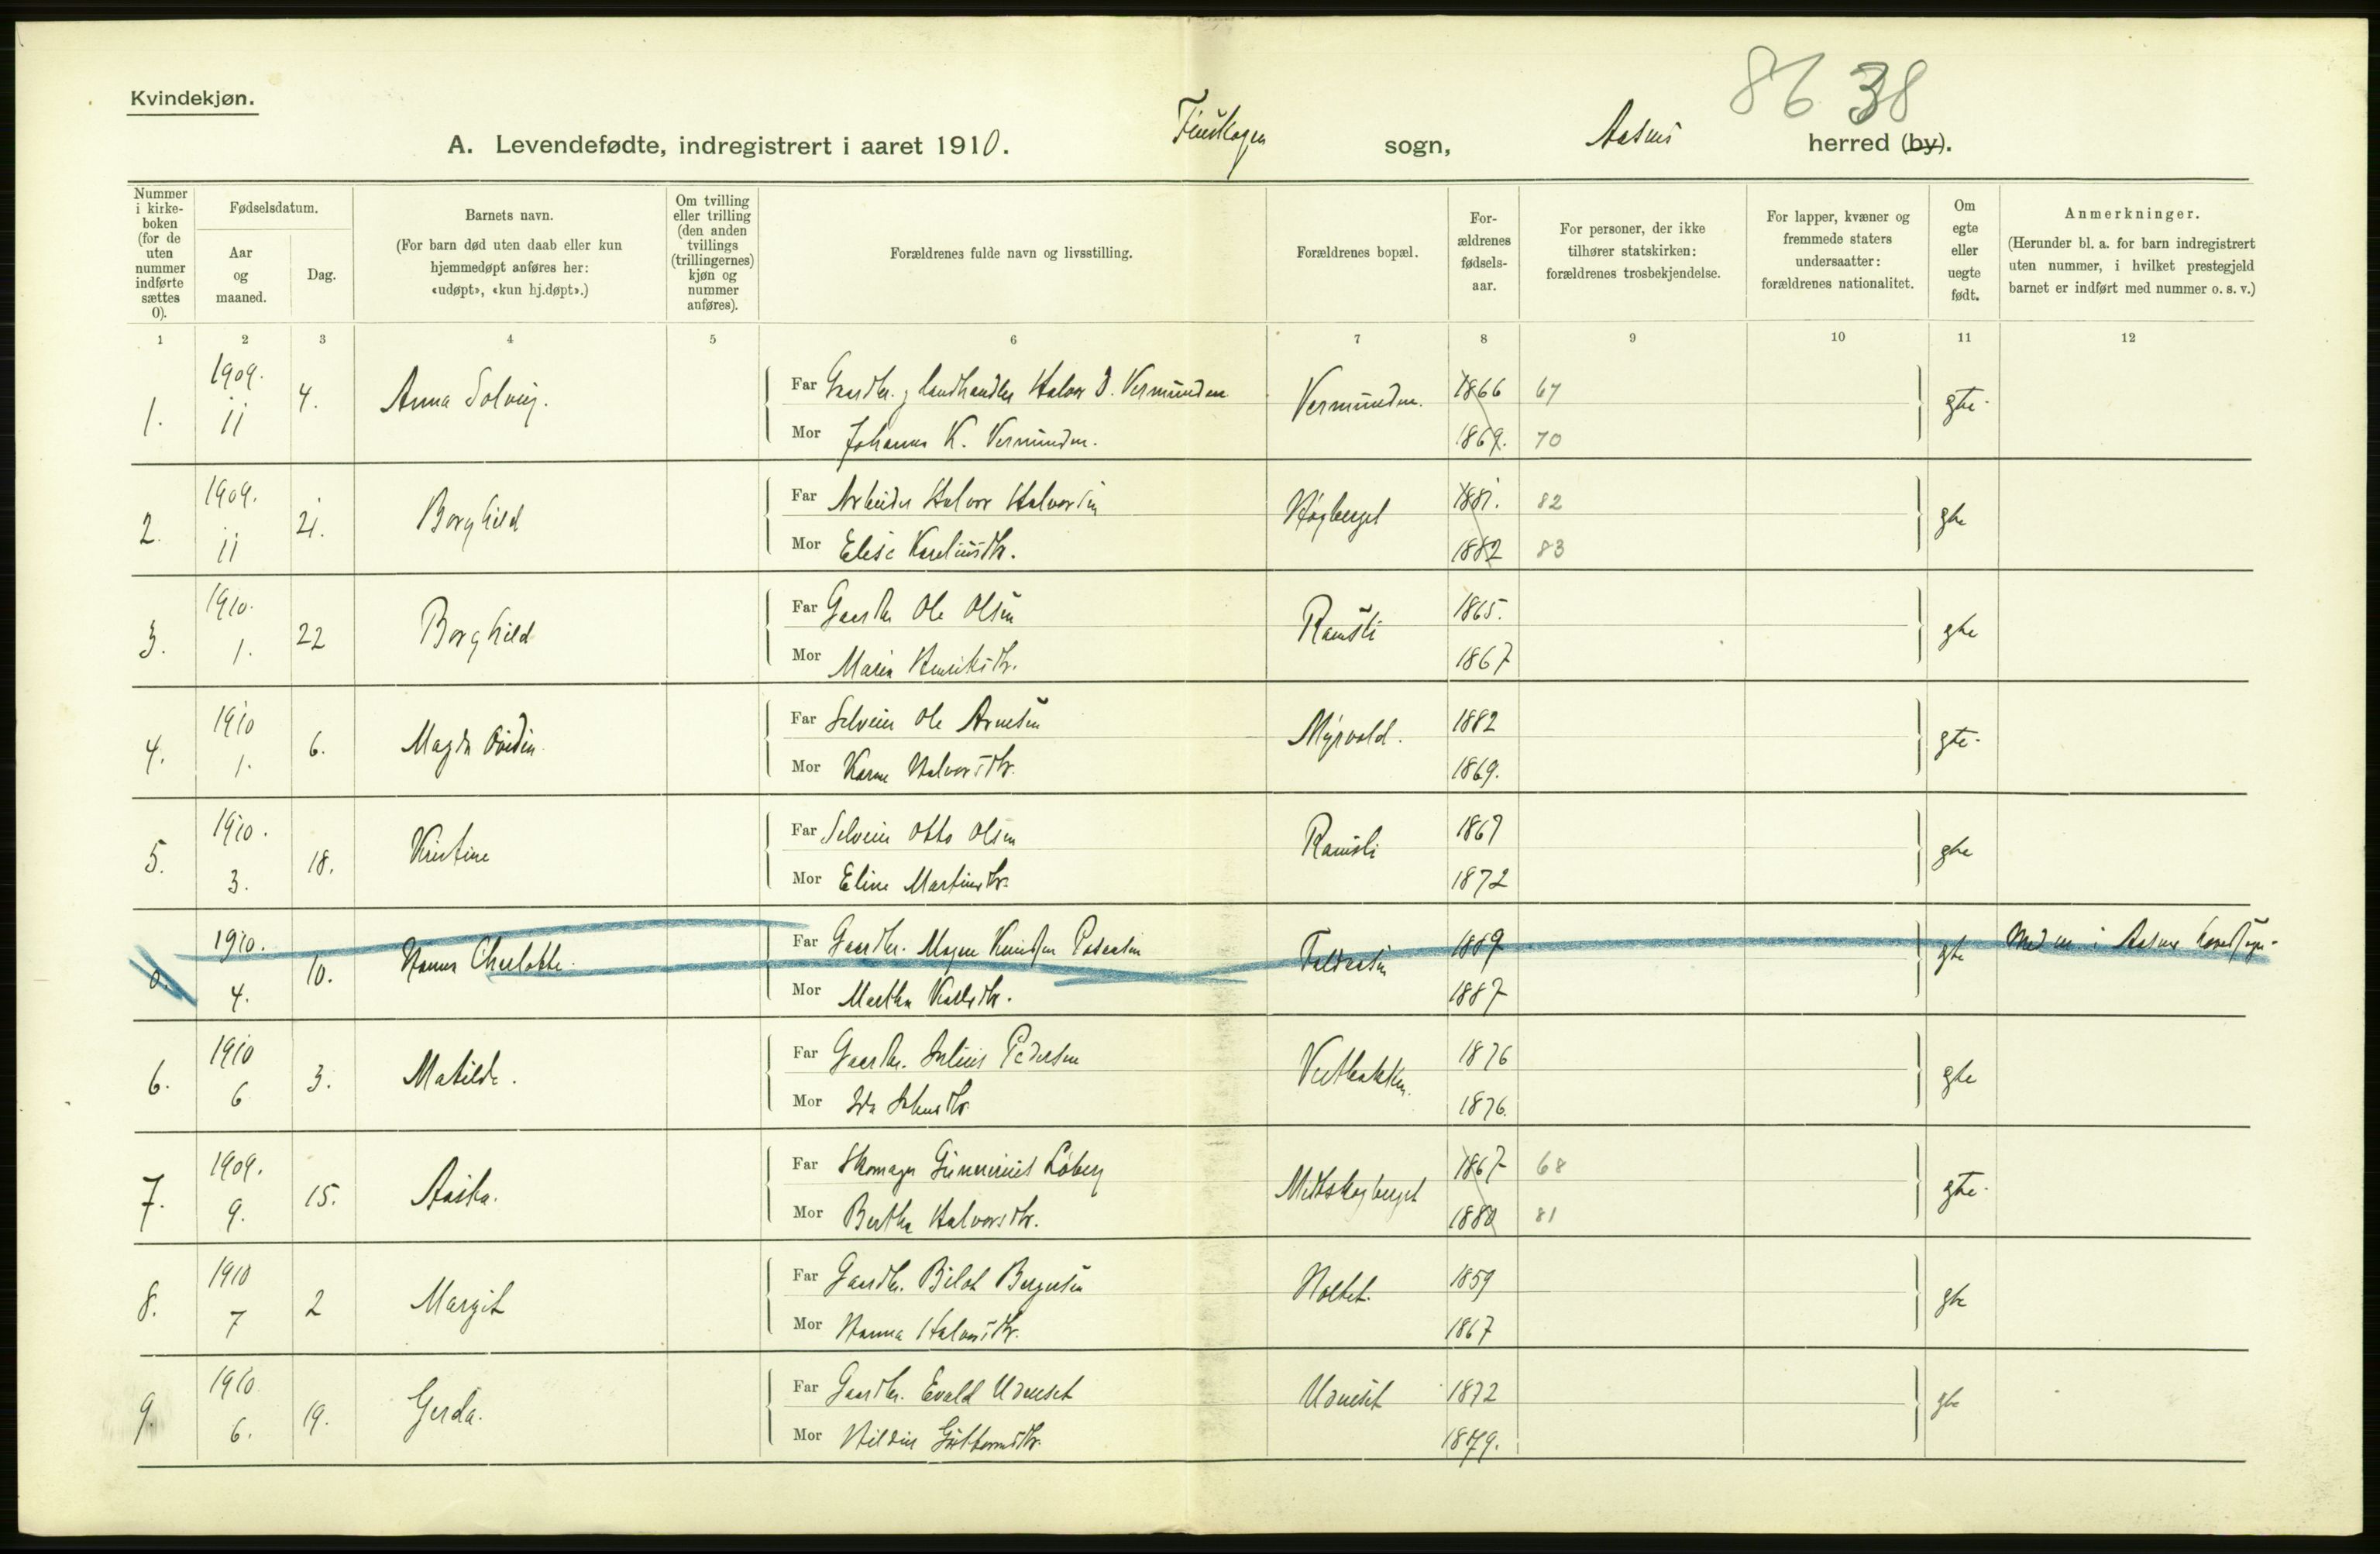 8638
Kvindekjøn.
A. Levendefødte, indregistrert i aaret 1910. Finskogen sogn, Aasnes herred (by).
Nummer i kirke-boken (for de uten nummer indførte sættes 0).
Fødselsdatum.
Aar og maaned.
Dag.
Barnets navn.
(For barn død uten daab eller kun hjemmedøpt anføres her: «udøpt», «kun hj.døpt».)
Om tvilling eller trilling (den anden tvillings (trillingernes) kjøn og nummer anføres).
Forældrenes fulde navn og livsstilling.
Forældrenes bopæl.
For-ældrenes fødsels-aar.
For personer, der ikke tilhører statskirken: forældrenes trosbekjendelse.
For lapper, kvæner og fremmede staters undersaatter: forældrenes nationalitet.
Om egte eller uegte født.
Anmerkninger.
(Herunder bl. a. for barn indregistrert uten nummer, i hvilket prestegjeld barnet er indført med nummer o. s. v.)
1 2 3 4 5 6 7 8 9 10 11 12
1. 1909. 11 4. Anna Solveig. Far Gaardbr. g landhandler Halvor D. Vermunden Vermunden. 1866 67 gte
Mor Johanna K. Vermunden. 1869. 70
2. 1909. 11 21. Borghild Far Arbeider Halvor Halvorsen Høgberget 1881. 82 gte
Mor Elise Kareliusdtr. 1882 83
3. 1910. 1. 22 Borghild Far Gaardbr Ole Olsen Ramsli 1865. gte
Mor Maria Henriksdtr. 1867
4. 1910 1. 6. Magda Far Selveier Ole Arnesen Myrvold. 1882 gte
Mor Karen Halvorsdtr. 1869.
5. 1910. 3. 18. Kristine Far Selveier Otto Olsen Ramsli 1867 gte
Mor Eline Martinsdtr. 1872
0. 1910. 4. 10. Hanna Charlotte. Far Gaardbr. Magnus Knudsen 1889 gte Med no i Aasnes hovedsogn.
Mor Martha Karlsdtr. 1887
6. 1910 6 3. Matilde. Far Gaardbr. Julius Pedersen Vestbakken. 1876 gte
Mor Ida Johnsdtr. 1876.
7. 1909. 9. 15. Aasta. Far Skomager Gunnerius Løberg Midtskogberget 1867 68 gte
Mor Bertha Halvorsdtr. 1880 81
8. 1910 7 2 Margit Far Gaardbr. Bergersen Holtet. 1859 gte
Mor Hanna Halvorsdtr. 1867
9. 1910 6. 19. Gerda. Far Gaardbr. Evald Udneset Udneset 1872 gte
Mor Guttormsdtr. 1879.